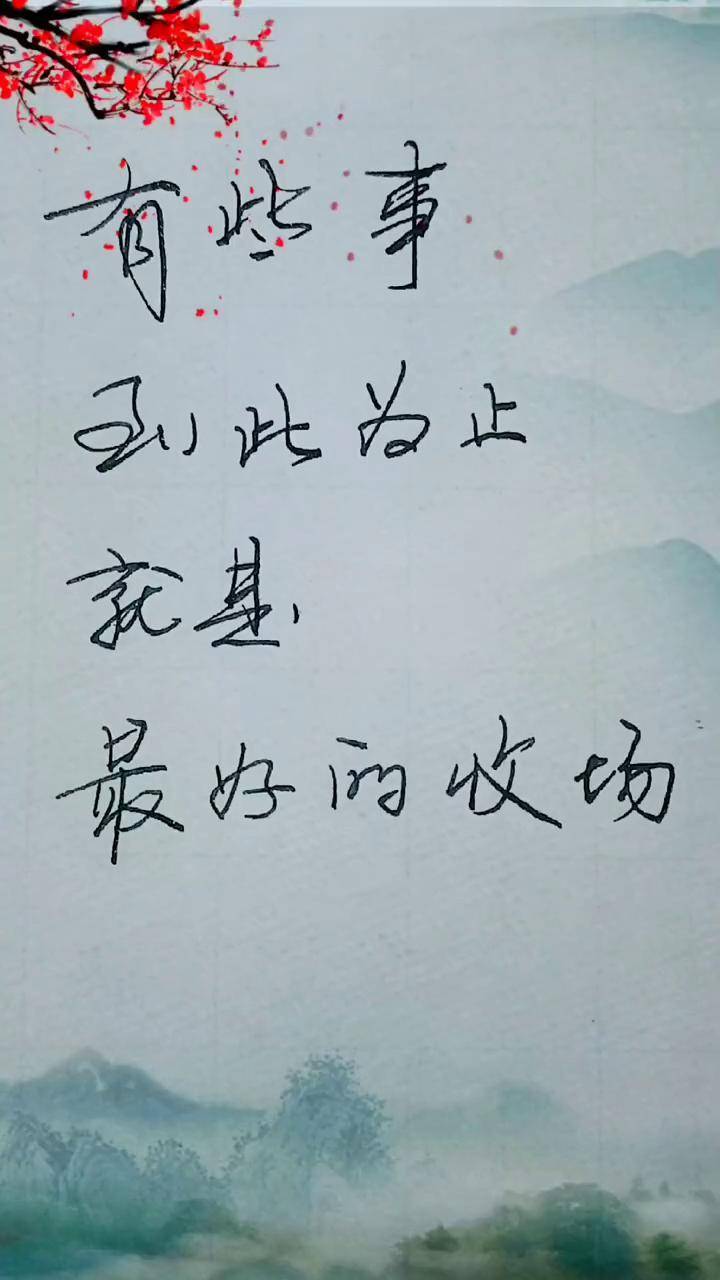 有些事
到此为止
就是
最好的收场